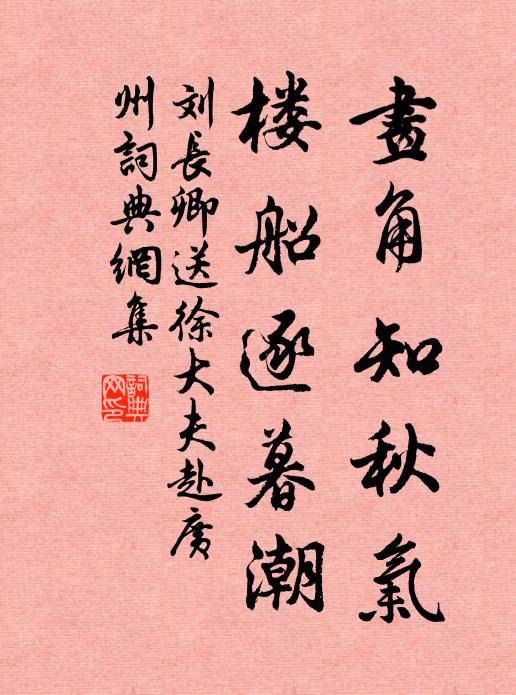 畫角知秋氣
楼船逐暮潮
刘長卿送徐大夫赴廣
州詞典網集
詞典網印